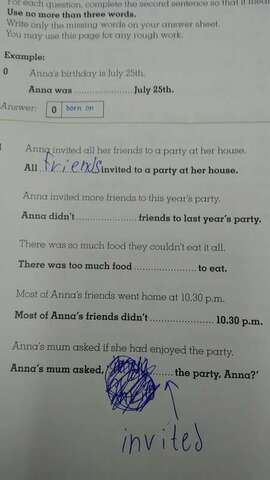 For each question, complete the second sentence so that it mea
Use no more than three words.
Write only the missing words on your answer sheet.
You may use this page for any rough work.
Example:
0 Anna's birthday is July 25th.
Anna was ........................ July 25th.
Answer: 0 born on
Anna invited all her friends to a party at her house.
All friends invited to a party at her house.
Anna invited more friends to this year's party.
Anna didn't ........................ friends to last year's party.
There was so much food they couldn't eat it all.
There was too much food ........................ to eat.
Most of Anna's friends went home at 10.30 p.m.
Most of Anna's friends didn't ........................ 10.30 p.m.
Anna's mum asked if she had enjoyed the party.
Anna's mum asked, ........ the party, Anna?'
invited